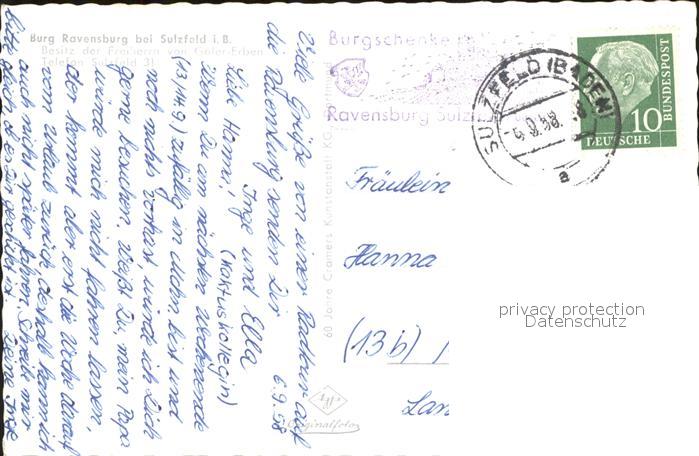 Burg Ravensburg bei Sulzfeld i. B.
Besitz der Freiherrn von Göler-Erben
Telefon Sulzfeld 31
Burgschenke
Ravensburg Sulz
SULZFELD (BADEN)
6.9.58.-8
a
DEUTSCHE BUNDESPOST
10
60 Jahre Cramers Kunstanstalt KG,
Originalfoto
Viele Grüße von einer Radtour auf
die Ravensburg senden Dir 6.9.58
Inge und Ella
(Kaktuskollegin)
Liebe Hanna!
Wenn Du am nächsten Wochenende
(13/14.9) zufällig in Mohn bist und
noch nichts vorhast, würde ich Dich
gerne besuchen. Weißt Du, mein Papa
würde mich nicht fahren lassen,
der kommt aber erst die Woche darauf
vom Urlaub zurück, deshalb kann ich
auch nicht später fahren. Schreibe mir
bitte Deine Inge
Fräulein
Hanna
(13b)
Lan
privacy protection
Datenschutz